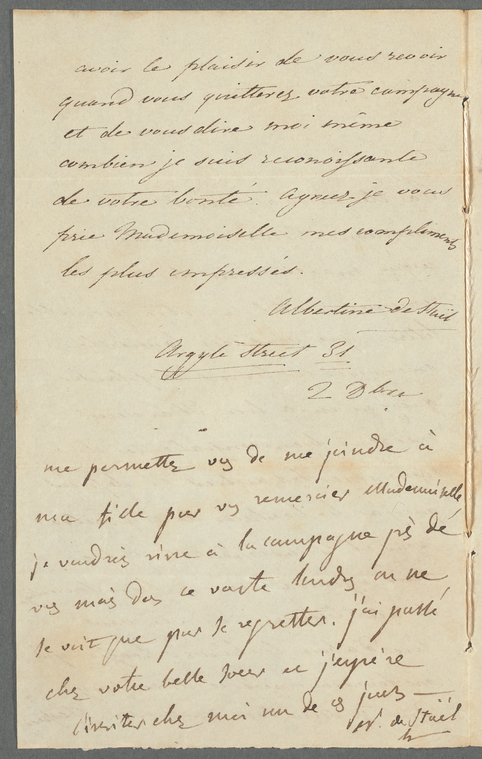 avoir le plaisir de vous revoir
quand vous quitterez votre campagne
et de vous dire moi même
combien je suis reconoissante
de votre bonté. agréez je vous
prie Mademoiselle mes complements
les plus empressés.
Albertine de Staël
Argyle Street 31
2 Dbre
me permettez vs de me joindre à
ma fille pour vs remercier Mademoiselle
je voudrois vivre à la campagne près de
vs mais ds ce vaste londres on ne
se voit que pour se regretter. j'ai passé
chez votre belle soeur et j'espère
l'inviter chez moi un de cs jours —
de Staël
h